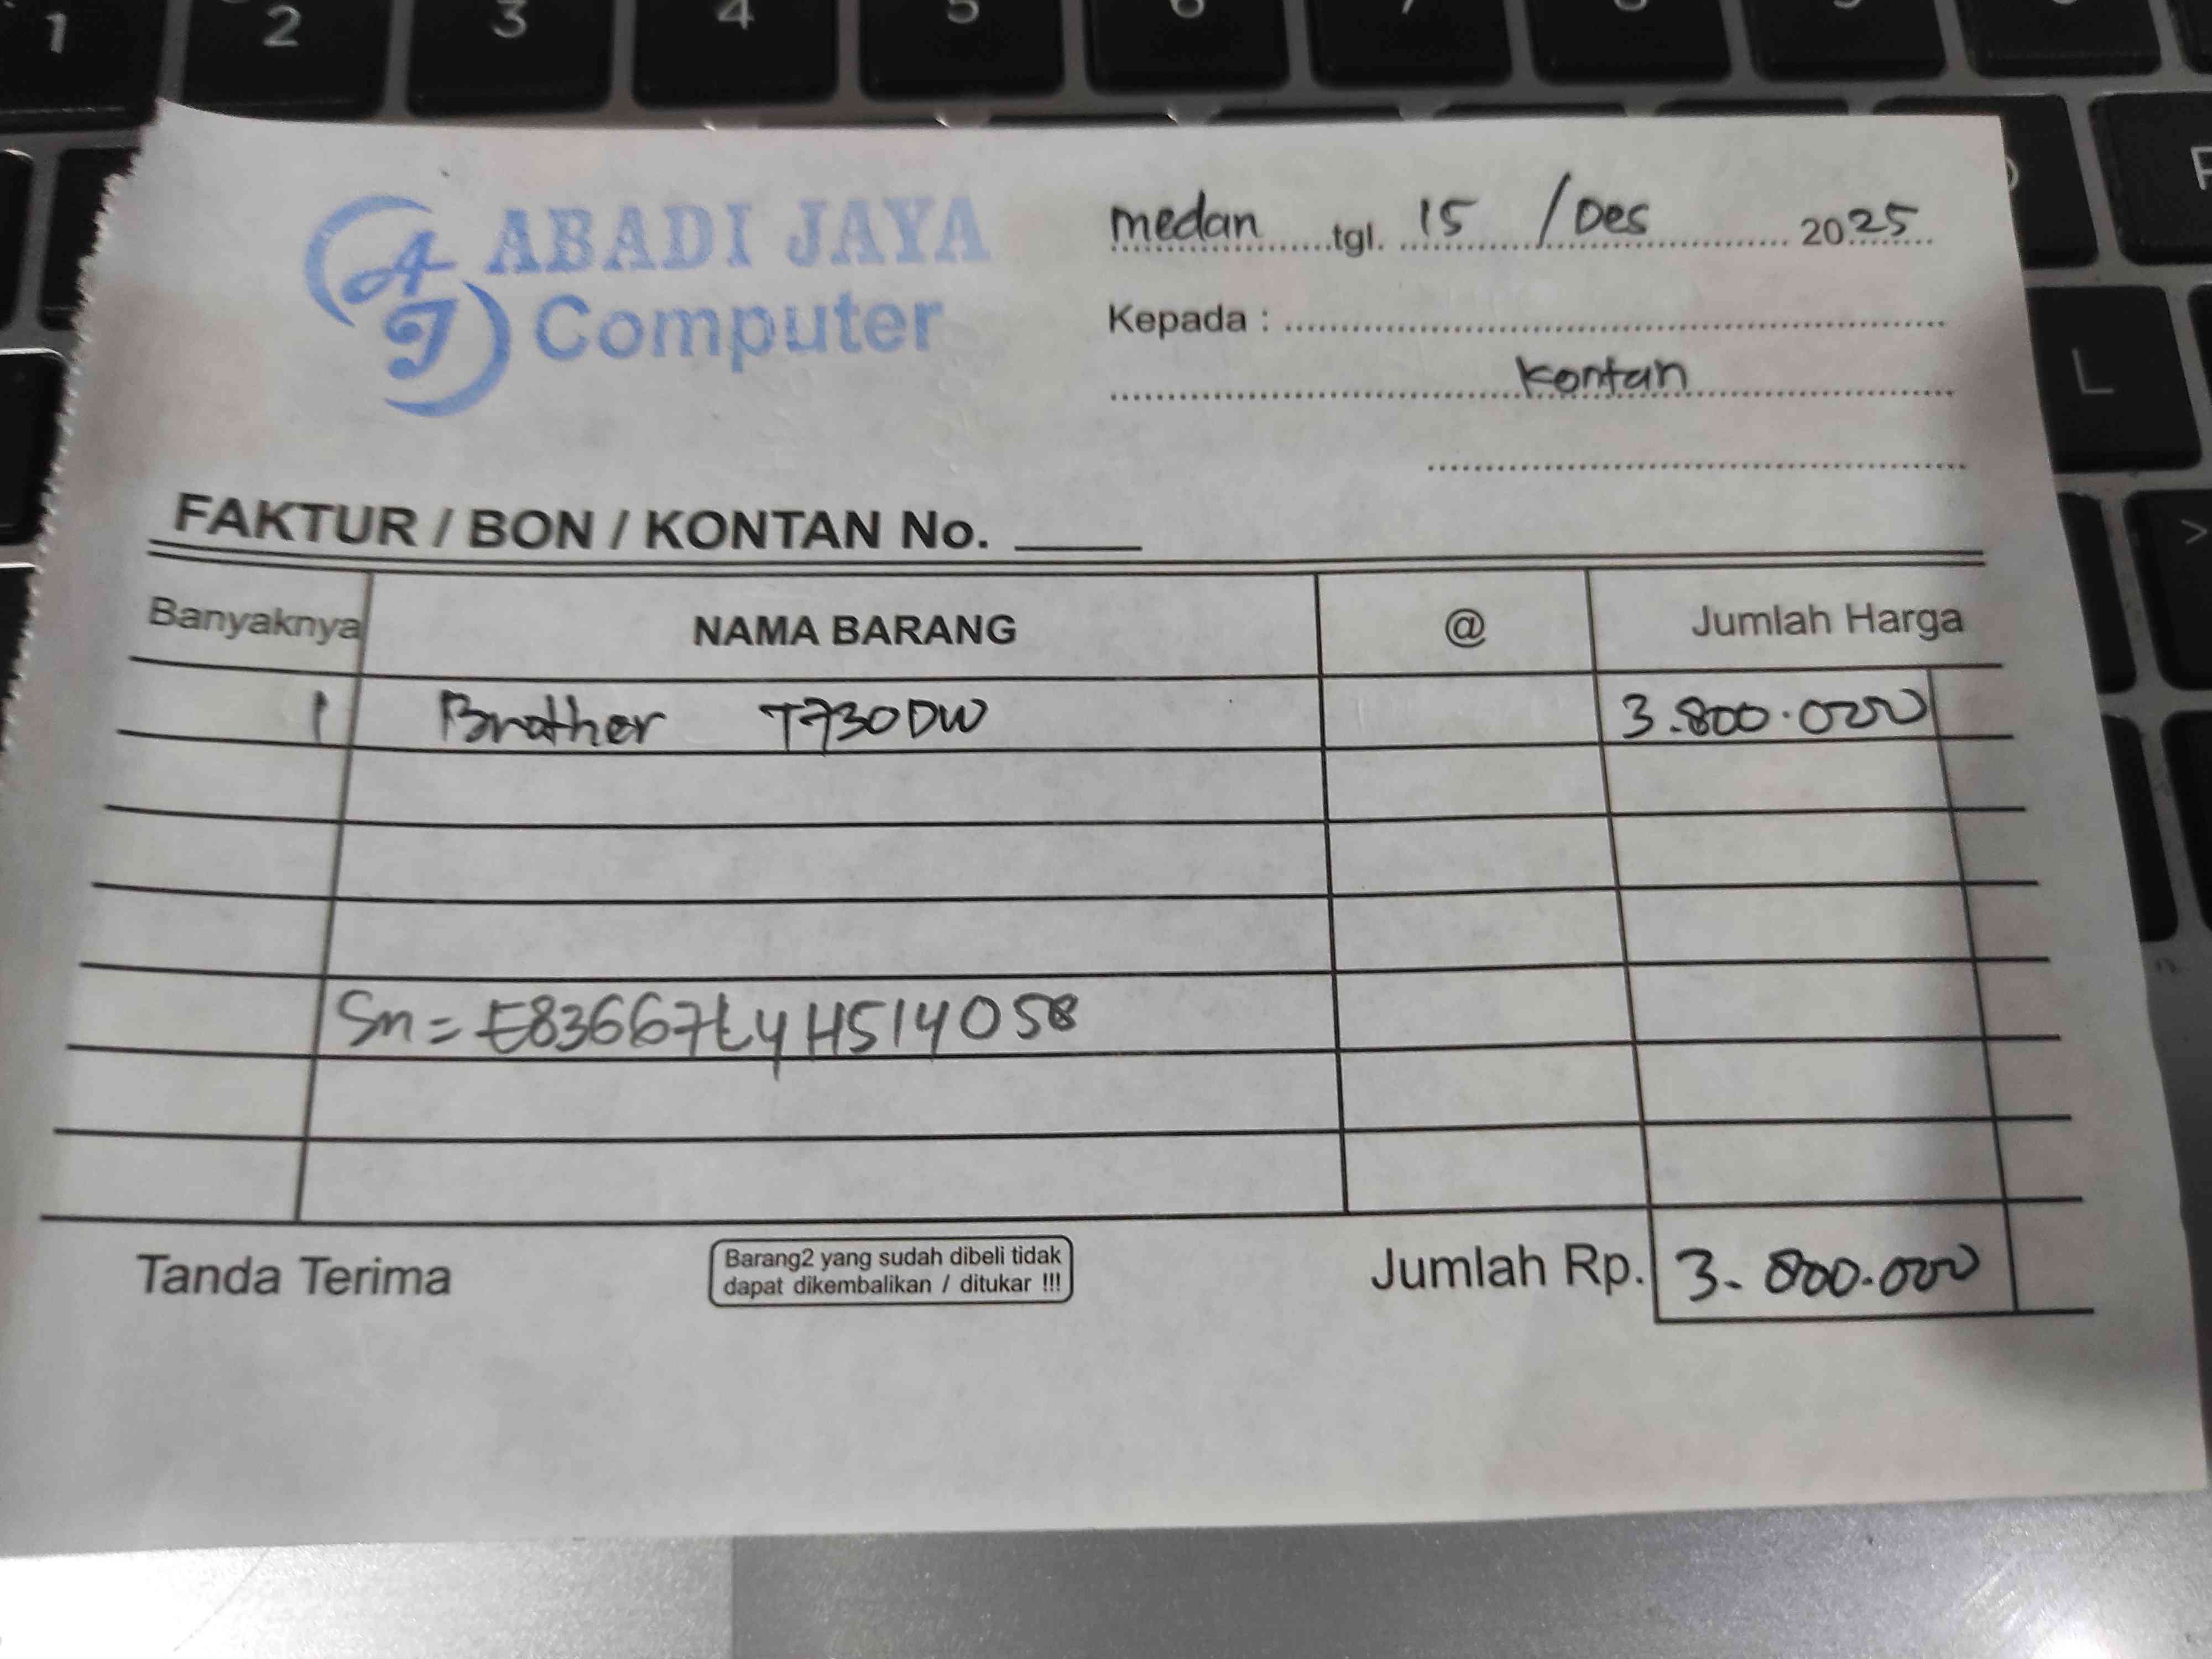 1 2 3 4 5 6 7 8 9
ABADI JAYA
Computer
AJ
medan tgl. 15 / Des 2025
Kepada :
Kontan
L
FAKTUR / BON / KONTAN No.
Banyaknya NAMA BARANG @ Jumlah Harga
1 Brother T730DW 3.800.000
Sn = E83667L4H514058
Tanda Terima
Barang2 yang sudah dibeli tidak
dapat dikembalikan / ditukar !!!
Jumlah Rp. 3.800.000